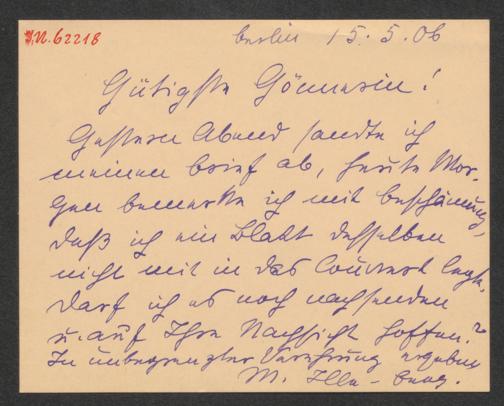 I.N. 62218
Berlin 15.5.06
Gütigste Gönnerin!
Gestern Abend sandte ich
meinen Brief ab, heute Mor-
gen bemerke ich mit Beschämung,
daß ich ein Blatt desselben
nicht mit in das Couvert legte.
Darf ich es noch nachsenden
u. auf Ihre Nachsicht hoffen?
In unbegrenzter Verehrung ergeben
M.